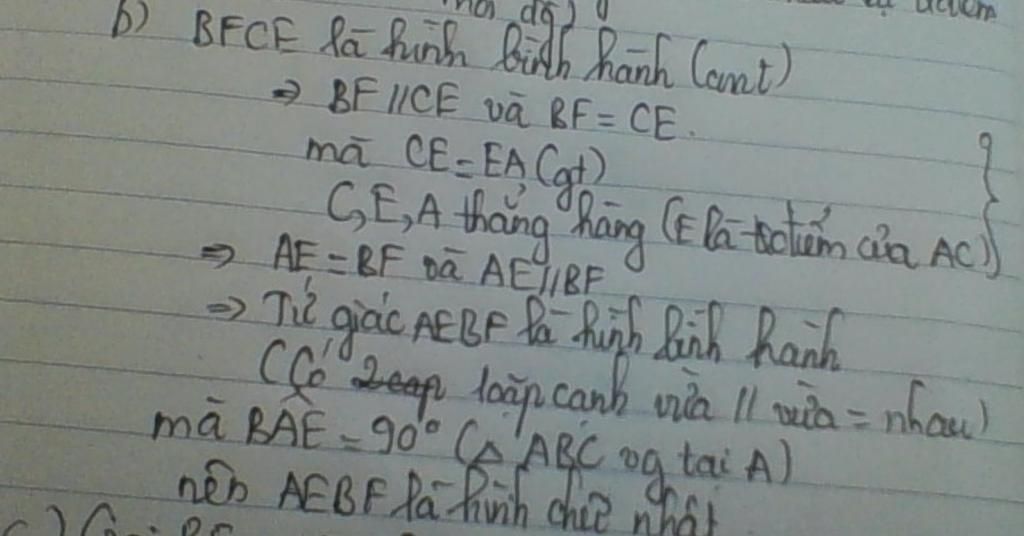 b) BFCE là hình bình hành (cmt)
⇒ BF//CE và BF = CE.
mà CE = EA (gt)
C, E, A thẳng hàng (E là tđiểm của AC)
⇒ AE = BF và AE//BF
⇒ Tứ giác AEBF là hình bình hành
(Có 1 cặp cạnh vừa // vừa = nhau)
mà BAE = 90° (△ ABC vg tại A)
nên AEBF là hình chữ nhật
c)